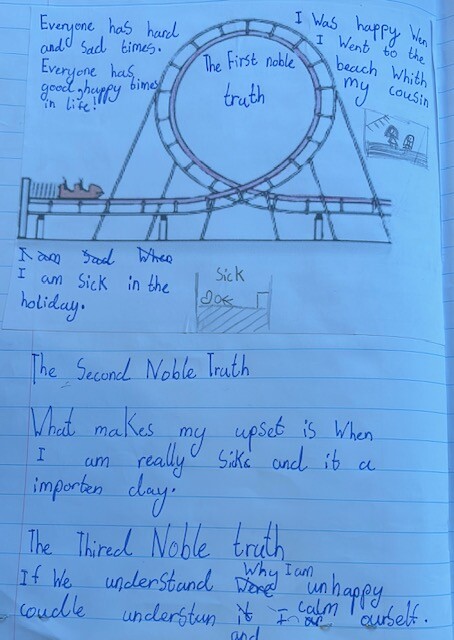 Everyone has hard
and sad times.
Everyone has
good, happy times
in life!
The First noble
truth
I Was happy Wen
I Went to the
beach Whith
my cousin
I am Sad When
I am Sick in the
holiday.
Sick
The Second Noble Truth
What makes my upset is When
I am really Sicks and it a
importen day.
The Thired Noble truth
If We understand Why I am unhappy
coudle understun it calm ourself.
and